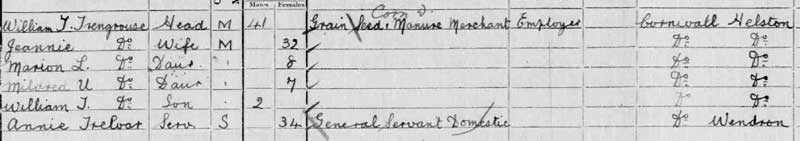 Males Females
Corn D.
William T. Trengrouse Head M 41 Grain Seed, Manure Merchant Employer Cornwall Helston
Jeannie Do Wife M 32 Do Do
Marion L. Do Daur 8 Do Do
Mildred U Do Daur 7 Do Do
William T. Do Son 2 Do Do
Annie Trelvar Serv. S 34 General Servant Domestic Do Wendron